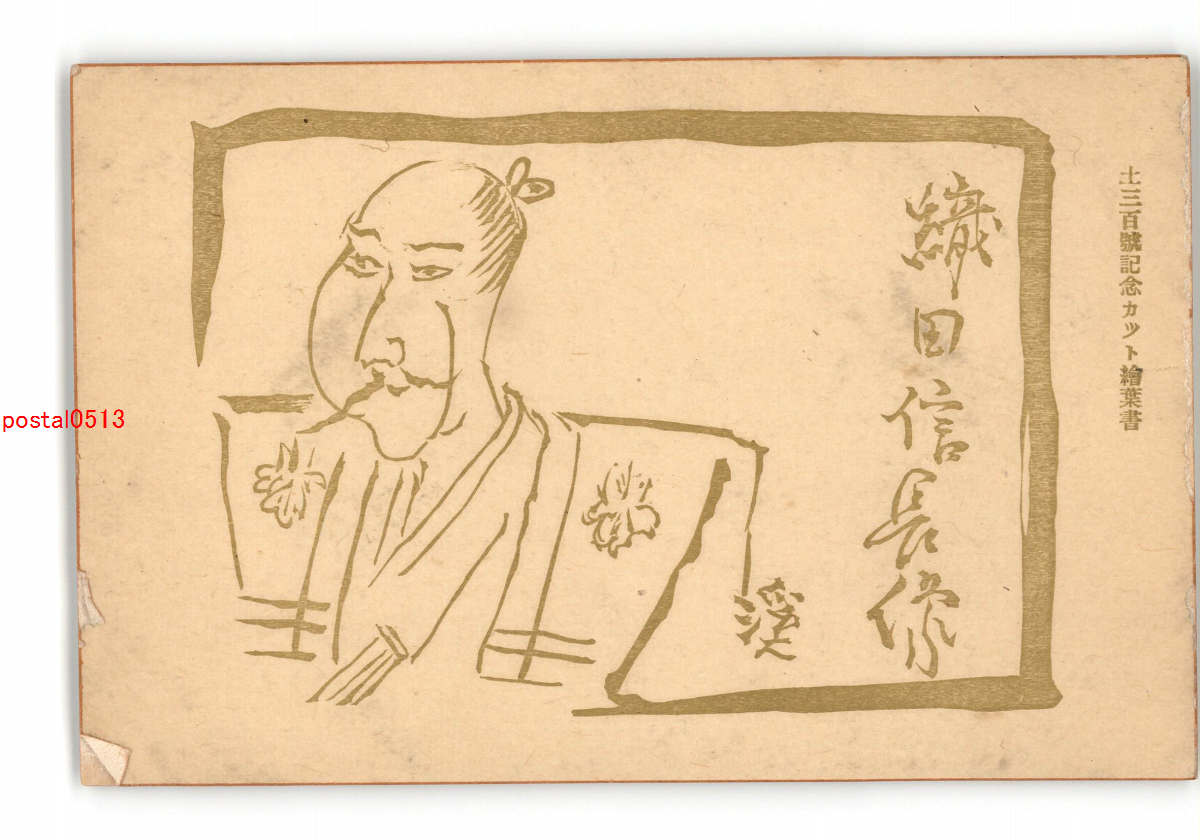 土三百號記念カット繪葉書
織田信長像
渓
postal0513